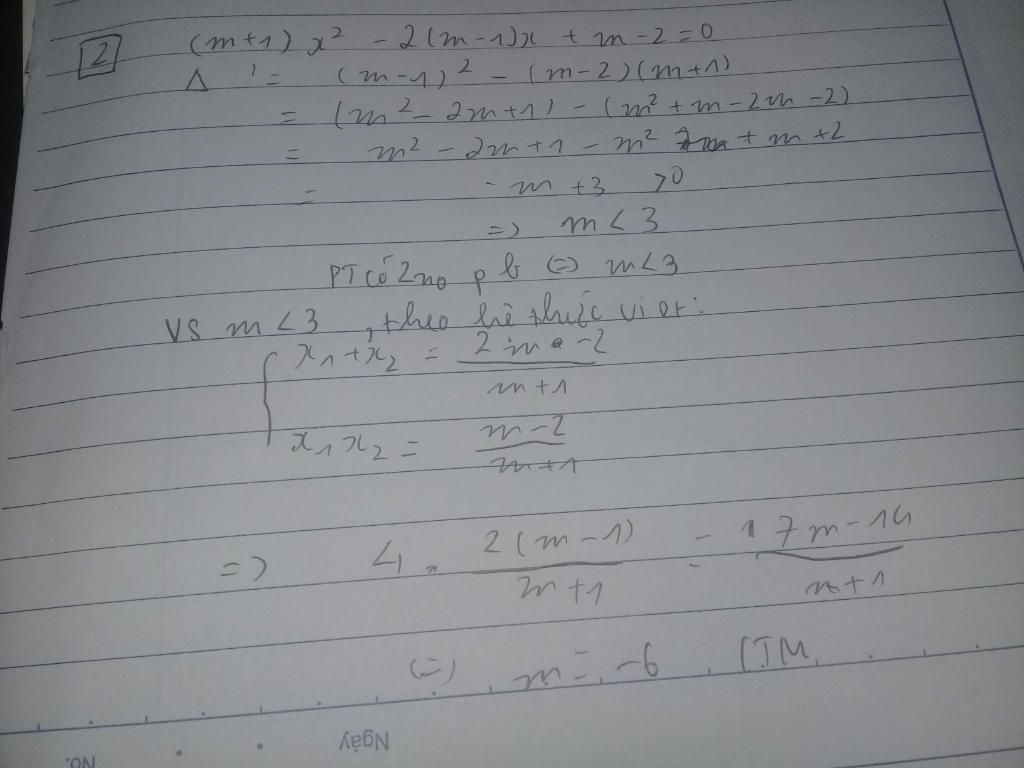 2 (m+1) x² - 2(m-1)x + m-2 = 0
Δ' = (m-1)² - (m-2)(m+1)
= (m² - 2m+1) - (m² + m - 2m - 2)
= m² - 2m + 1 - m² + m + 2
= - m + 3 >0
=> m < 3
PT có 2 no p b <=> m<3
vs m < 3, theo hệ thức viet:
x₁ + x₂ = 2m - 2 / m+1
x₁x₂ = m-2 / m+1
=> 4. 2(m-1) / m+1 = 7m-14 / m+1
(=) m = -6 (TM
Ngày
No.